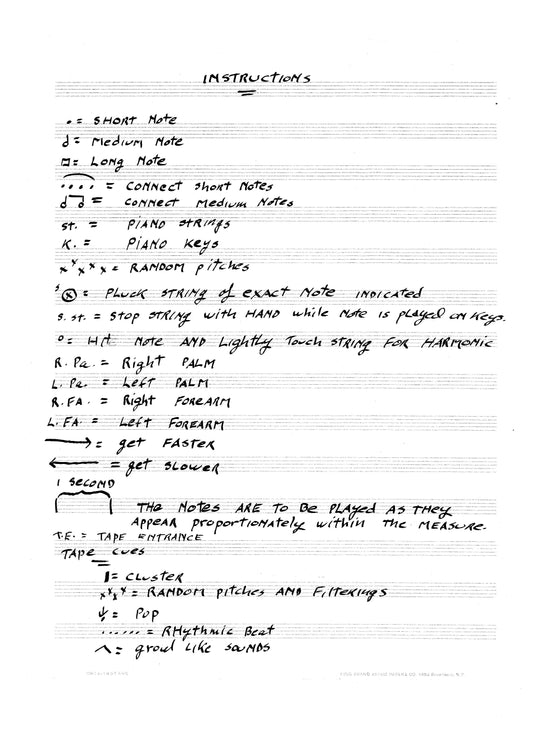 INSTRUCTIONS
• = SHORT Note
= Medium Note
= Long Note
.... = CONNECT short Notes
= CONNECT Medium Notes
st. = PIANO strings
K. = PIANO Keys
x x x x x = RANDOM pitches
s ⓧ = PLUCK STRING of EXACT Note INDICATED
s. st. = Stop STRING with HAND while Note is played on Keys.
o = Hit Note AND Lightly Touch STRING FOR HARMONIC
R. Pa. = Right PALM
L. Pa. = Left PALM
R. FA. = Right FOREARM
L. FA. = Left FOREARM
→ = get FASTER
← = get SLOWER
1 SECOND
THE NOTES ARE TO BE PLAYED AS THEY
APPEAR proportionately within THE MEASURE.
T.E. = TAPE ENTRANCE
TAPE cues
= CLUSTER
x x x x = RANDOM pitches AND Filterings
= Pop
....... = RHythmic Beat
^ = growl like souNDS